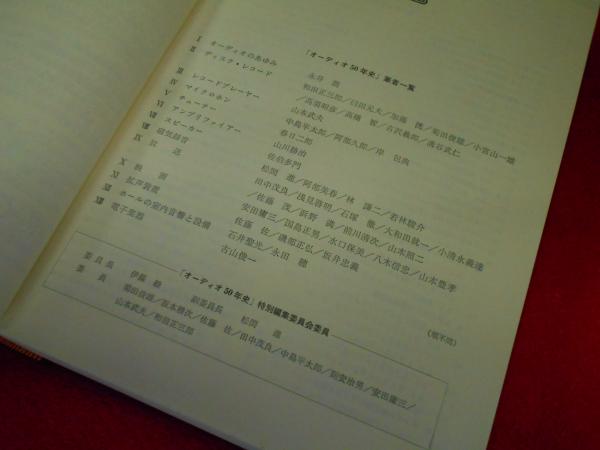 「オーディオ50年史」筆者一覧
I オーディオのあゆみ
II ディスク・レコード
III レコードプレーヤー
IV マイクロホン
V チューナー
VI アンプリファイアー
VII スピーカー
VIII 磁気録音
IX 放 送
X 映 画
XI 拡声装置
XII ホールの室内音響と設備
XIII 電子楽器
和田正三郎／臼田元夫／加藤 ／菊田俊雄／小宮山一雄
／高須昭彦／高橋 ／吉沢義郎／湊谷武仁
山本武夫
中島平太郎／阿部久郎／岸 
春日二郎
山川静治
佐伯多門
松間 進／阿部芙春／林 謙二／若林駿介
田中茂良／浅見啓明／石塚 徹／大和田 一／小清永義達
／佐藤 茂／浜野 満／前川清次／山本照二
安田庸三／国島正男／水口保美／八木信忠／山本豊孝
佐藤 佐／磯部正弘／坂井忠義
石井聖光／永田 穂
古山俊一
（順不同）
「オーディオ50年史」特別編集委員会委員
委員長 伊藤 毅 副委員長 松間 進
委 員 菊田俊雄／阪本楢次／佐藤 佐／田中茂良／中島平太郎／ 治男／安田庸三／
山本武夫／和田正三郎